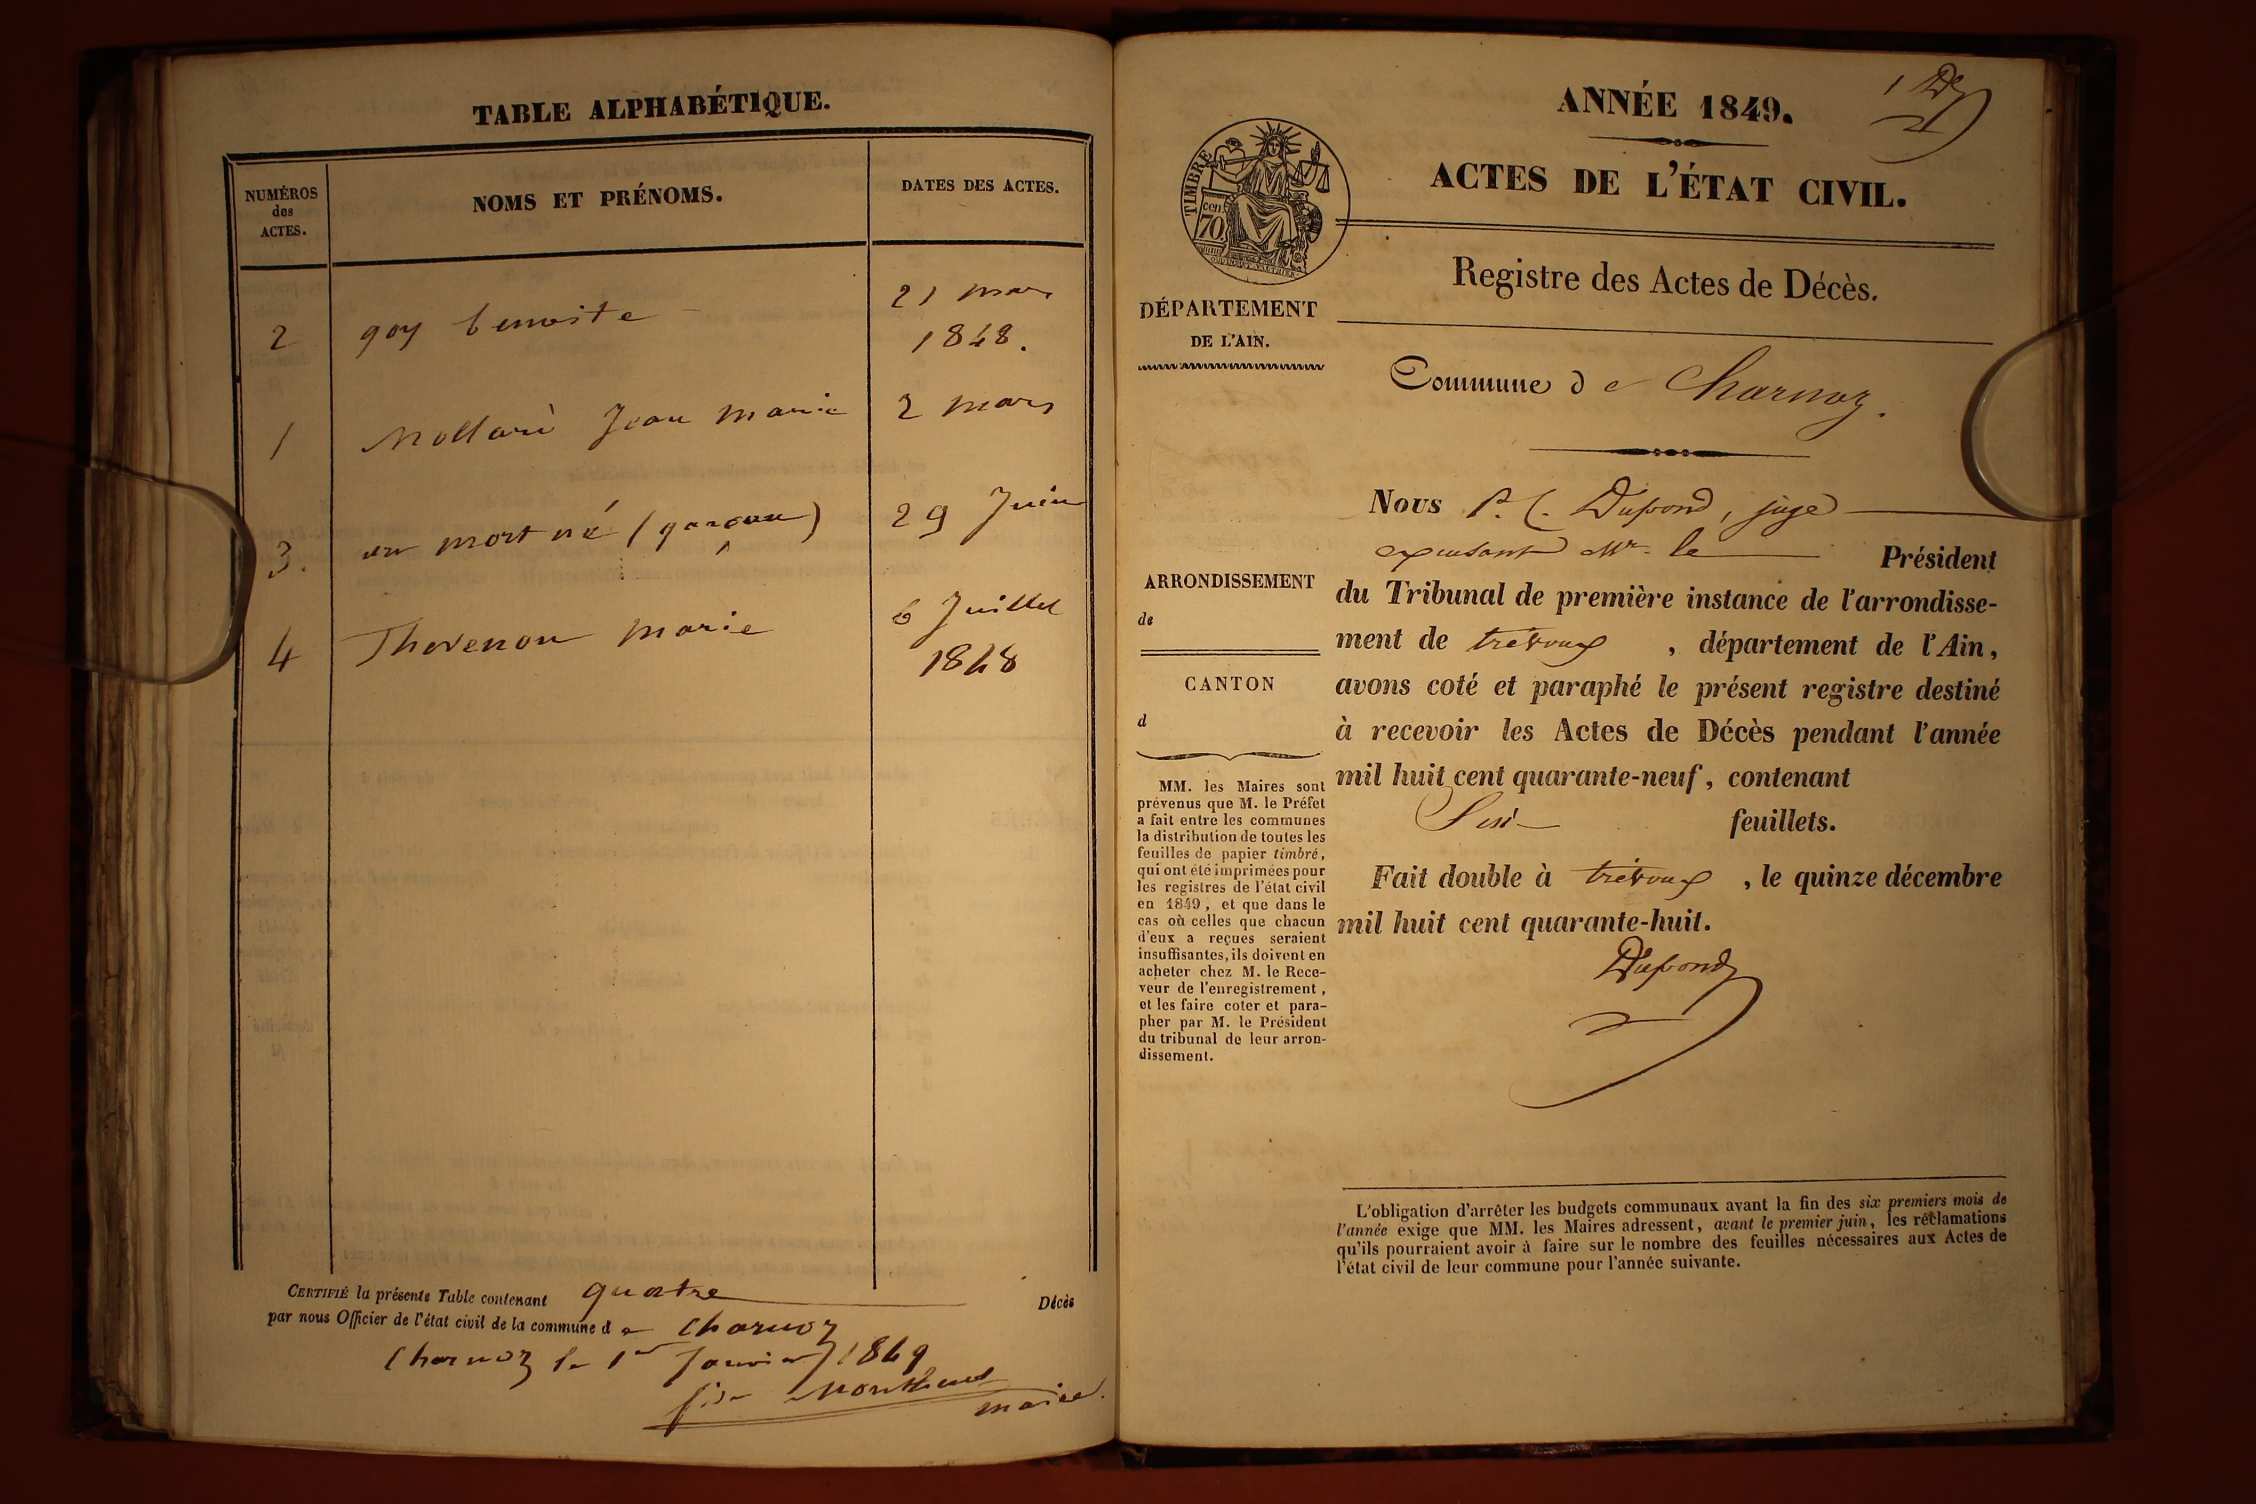 TABLE ALPHABÉTIQUE.
NUMÉROS
des
ACTES.
NOMS ET PRÉNOMS.
DATES DES ACTES.
2 goy benoite 21 mars
1848.
1 Mollard Jean Marie 2 mars
3. un mort né (garçon) 29 Juin
4 Thevenon marie 6 Juillet
1848
CERTIFIÉ la présente Table contenant quatre Décès
par nous Officier de l'état civil de la commune de Charnoz
Charnoz le 1er Janvier 1849
maire.
1
ANNÉE 1849.
ACTES DE L'ÉTAT CIVIL.
TIMBRE
70
cen
Registre des Actes de Décès.
DÉPARTEMENT
DE L'AIN.
Commune de Charnoz.
Nous P. C. Dupond, juge
Mr. le Président
ARRONDISSEMENT
de
CANTON
d
du Tribunal de première instance de l'arrondisse-
ment de trévoux, département de l'Ain,
avons coté et paraphé le présent registre destiné
à recevoir les Actes de Décès pendant l'année
mil huit cent quarante-neuf, contenant
feuillets.
Fait double à trévoux, le quinze décembre
mil huit cent quarante-huit.
Dupond
MM. les Maires sont
prévenus que M. le Préfet
a fait entre les communes
la distribution de toutes les
feuilles de papier timbré,
qui ont été imprimées pour
les registres de l'état civil
en 1849, et que dans le
cas où celles que chacun
d'eux a reçues seraient
insuffisantes, ils doivent en
acheter chez M. le Rece-
veur de l'enregistrement,
et les faire coter et para-
pher par M. le Président
du tribunal de leur arron-
dissement.
L'obligation d'arrêter les budgets communaux avant la fin des six premiers mois de
l'année exige que MM. les Maires adressent, avant le premier juin, les réclamations
qu'ils pourraient avoir à faire sur le nombre des feuilles nécessaires aux Actes de
l'état civil de leur commune pour l'année suivante.